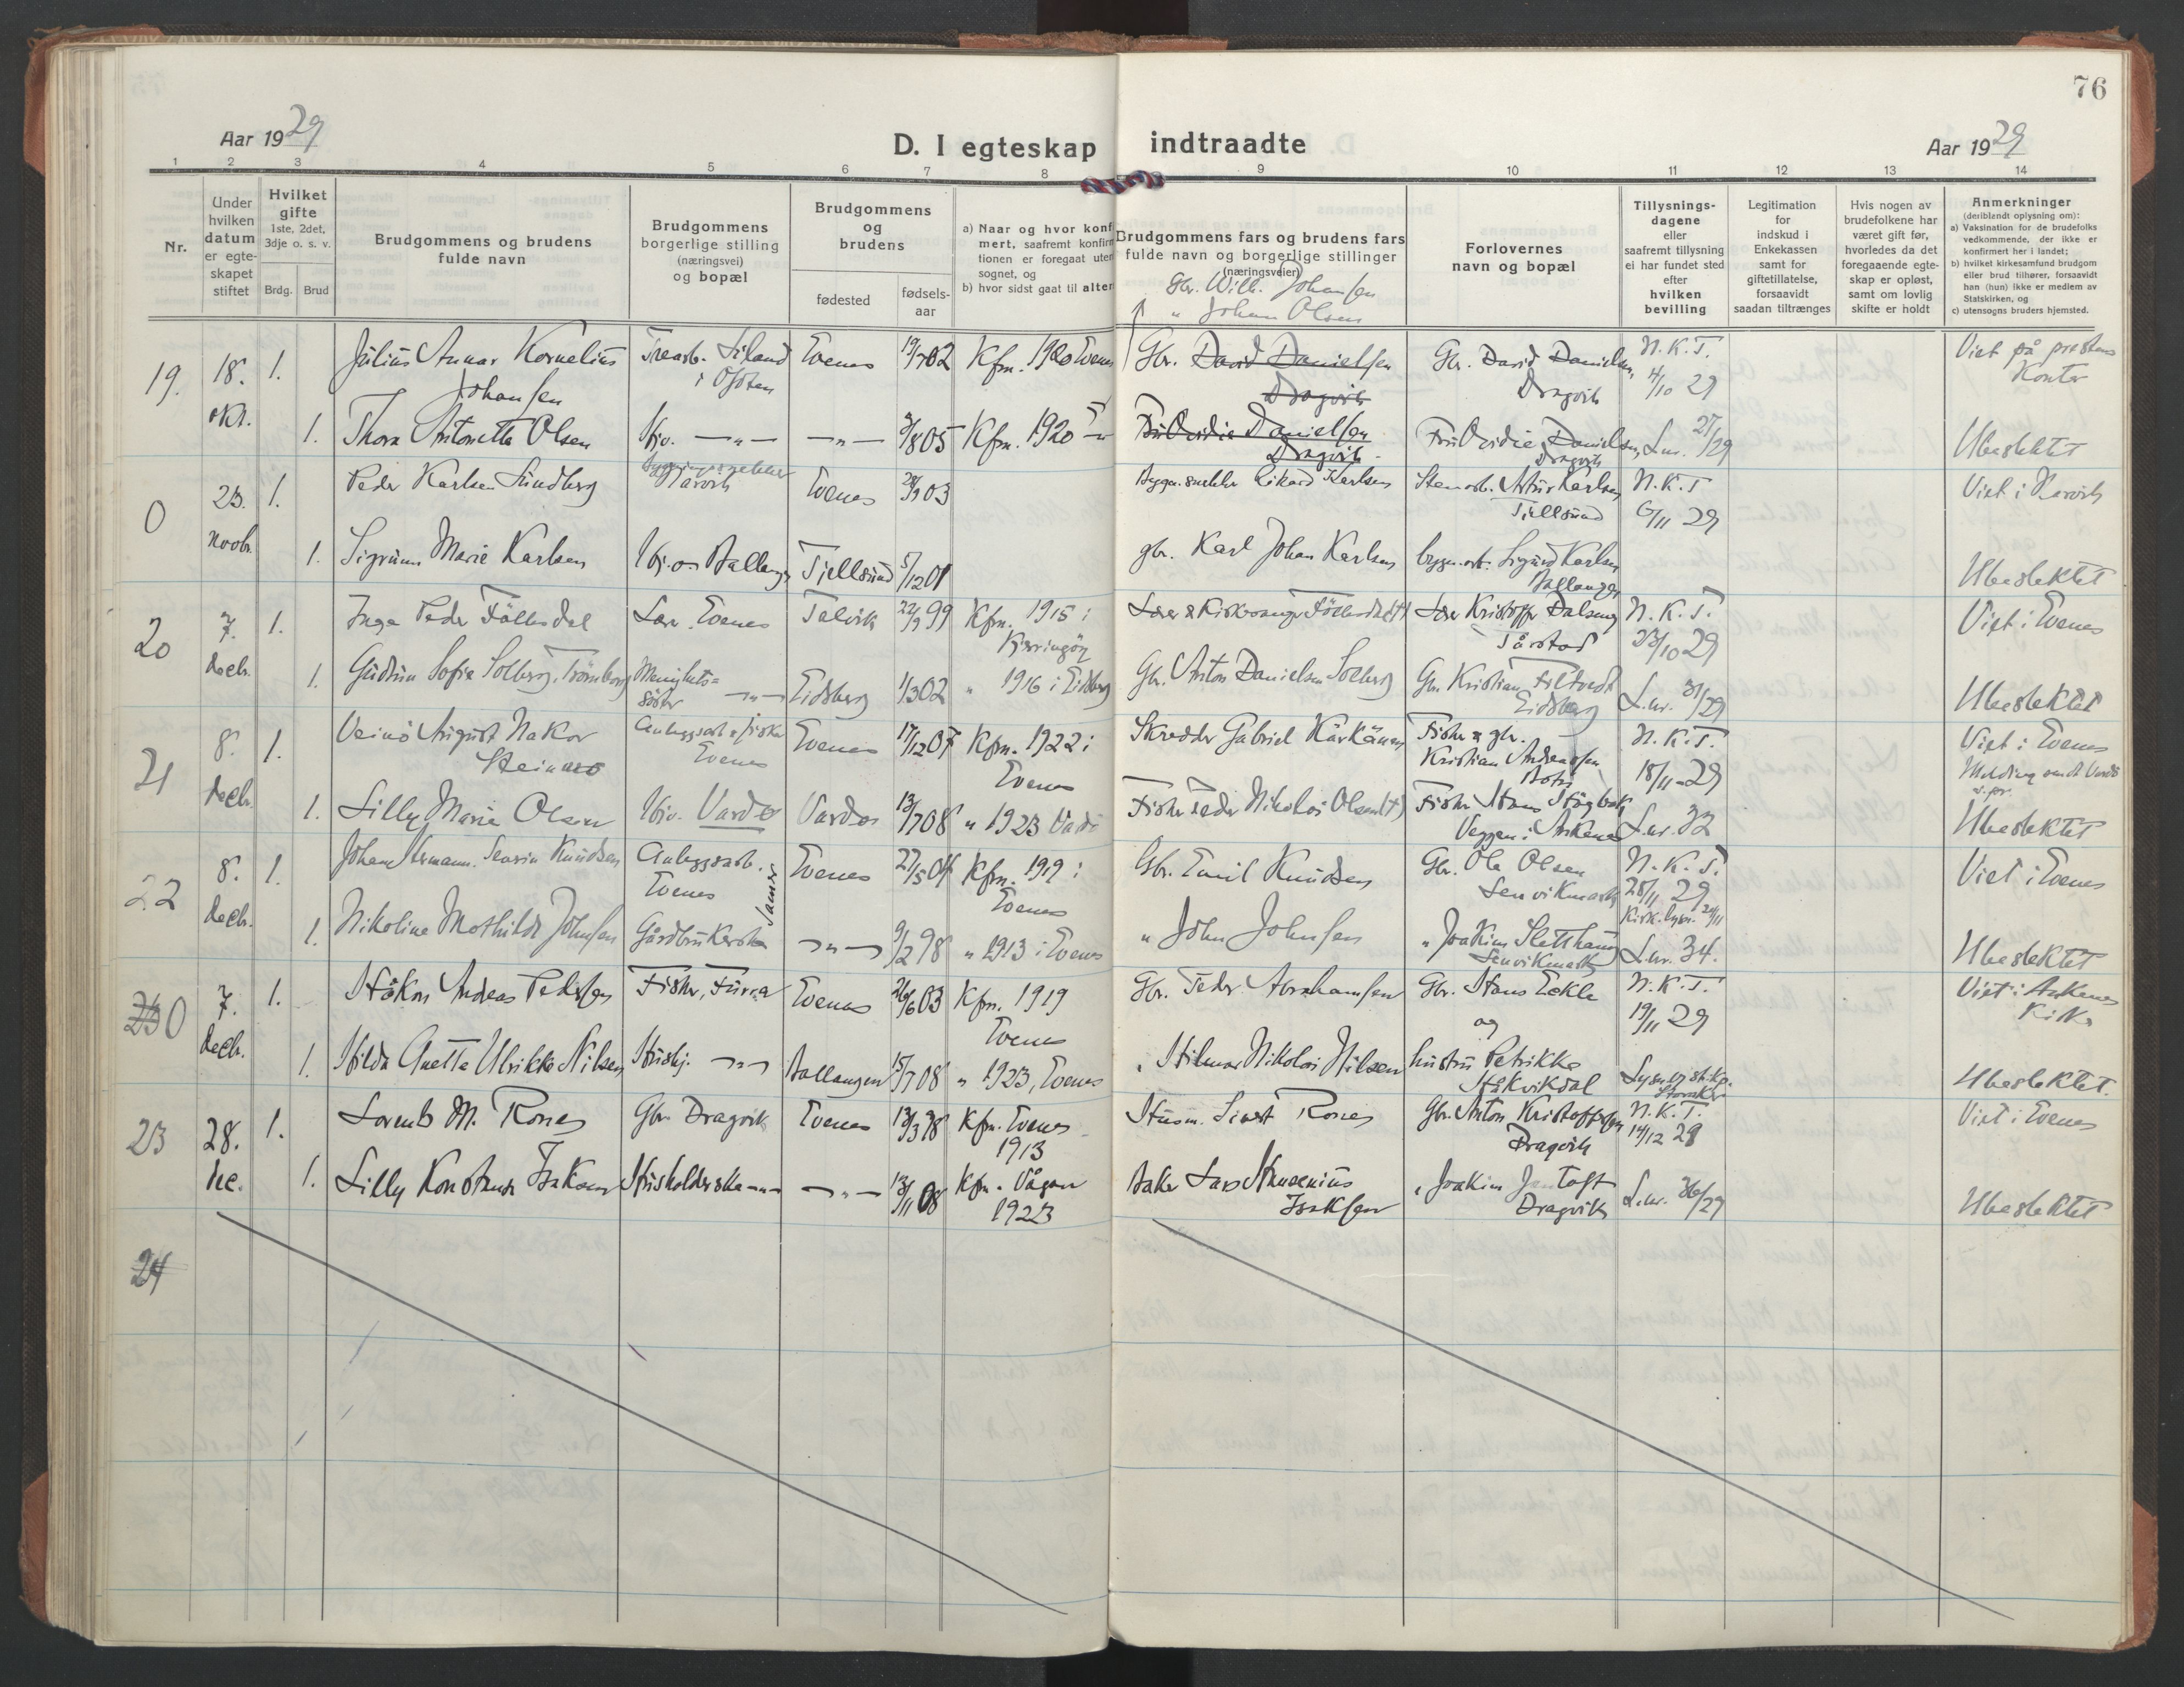 76
Aar 1929
D. I egteskap indtraadte
Aar 1929
1 2 3 4 5 6 7 8 9 10 11 12 13 14
Nr.
Under hvilken datum er egteskapet stiftet
Hvilket gifte 1ste, 2det, 3dje o. s. v.
Brdg. Brud
Brudgommens og brudens fulde navn
Brudgommens borgerlige stilling (næringsvei) og bopæl
Brudgommens og brudens
fødested
fødsels-aar
a) Naar og hvor konf
mert, saafremt konfir
tionen er foregaat uten
sognet, og
b) hvor sidst gaat til alter
Brudgommens fars og brudens fars
fulde navn og borgerlige stillinger
(næringsveier)
Forlovernes navn og bopæl
Tillysnings-dagene eller saafremt tillysning ei har fundet sted efter hvilken bevilling
Legitimation for indskud i Enkekassen samt for giftetillatelse, forsaavidt saadan tiltrænges
Hvis nogen av brudefolkene har været gift før, hvorledes da det foregaaende egte-skap er opløst, samt om lovlig skifte er holdt
Anmerkninger
(deriblandt oplysning om):
a) Vaksination for de brudefolks vedkommende, der ikke er konfirmert her i landet;
b) hvilket kirkesamfund brudgom eller brud tilhører, forsaavidt han (hun) ikke er medlem av Statskirken, og
c) utensogns bruders hjemsted.
Gbr. Will. Johansen
" Johan Olsen
19. 18. okt. 1. Julius Annar Kornelius Johansen Trearb. Liland i Ofoten Evenes 19/7 02 Kfm. 1920 Evenes Gbr. David Danielsen Dragvik Gbr. David Danielsen, Dragvik N.K.T. 4/10 29 Viet på prestens kontor
1. Thora Antonette Olsen Kjv. —"— —"— 3/8 05 Kfm. 1920 —"— Fru Ovidie Danielsen Dragvik Fru Ovidie Danielsen, Dragvik L.nr. 27/29 Ubeslektet
0 23. novbr. 1. Peder Karlsen Lindberg Bygningssnekker Narvik Evenes 28/9 03 Byggn.snekker Rikard Karlsen Stenarb. Artur Karlsen Tjellsund N.K.T 6/11 29 Viet i Narvik
1. Sigrunn Marie Karlsen Kj.v. Ballangen Tjellsund 5/12 01 gbr. Karl Johan Karlsen byggn.arb. Sigurd Karlsen Ballangen Ubeslektet
20 7. decbr. 1. Inge Peder Föllesdal Lær. Evenes Talvik 22/9 99 Kfm. 1915 i Kjerringöy Lærer & Kirkesanger Föllesdal(†) Lærer Kristoffer Dalseng Tårstad N.K.T. 23/10 29 Viet i Evenes
1. Gudrun Sofie Solberg, Trömborg Menighets=söster —"— Eidsberg 1/3 02 " 1916 i Eidsberg Gbr. Anton Danielsen Solberg Gbr. Kristian Filtvedt Eidsberg L.nr. 31/29 Ubeslektet
21 8. decbr. 1. Veinö August Nakor Steinersö Anleggsarb. & fisker Evenes Evenes 17/12 07 Kfm. 1922 i Evenes Skredder Gabriel Kärkäinen Fisker & gbr. Kristian Andreassen Botn N.K.T. 18/11-29 Viet i Evenes Melding sendt Vardö s.pr.
1. Lilly Marie Olsen Kjv. Vardø Vardø 13/7 08 " 1923 Vardö Fisker Peder Nikolai Olsen(†) Fisker Hans Höybak Veggen i Ankenes L.nr. 32 Ubeslektet
22 8. decbr. 1. Johan Hermann Severin Knudsen Anleggsarb. Evenes Evenes 27/5 04 Kfm. 1919 i Evenes Gbr. Emil Knudsen Gbr. Ole Olsen Lenvikmark N.K.T. 28/11 29 Kirk.lysn. 24/11 Viet i Evenes
1. Nikoline Mathilde Johnsen Gårdbrukerske Samer —"— 9/2 98 " 1913 i Evenes " John Johnsen " Joakim Sletthaug Lenvikmark L.nr. 34. Ubeslektet
23 0 7. decbr. 1. Håkon Andreas Pedersen Fisker, Furra Evenes 26/6 03 Kfm. 1919 Evenes Gbr. Peder Abrahamsen Gbr. Hans Eckle og N.K.T. 19/11 29 Viet i Ankenes Kirke
1. Hilda Anette Ulrikke Nilsen Hushj. —"— Ballangen 15/7 08 " 1923, Evenes " Hilmar Nikolai Nilsen hustru Petrikke Håkvikdal Ubeslektet.
23 28. de. 1. Lorents M. Rones Gbr. Dragvik Evenes 13/3 98 Kfm. Evenes 1913 Husm. Sivert Rones Gbr. Anton Kristoffersen Dragvik N.K.T. 14/12 29 Viet i Evenes
1. Lilly Konstanse Isaksen Husholderske —"— —"— 13/11 08 Kfm. Vågan 1923 Baker Lars Isaksen " Joakim Jentoft Dragvik L.nr. 36/29 Ubeslektet
24